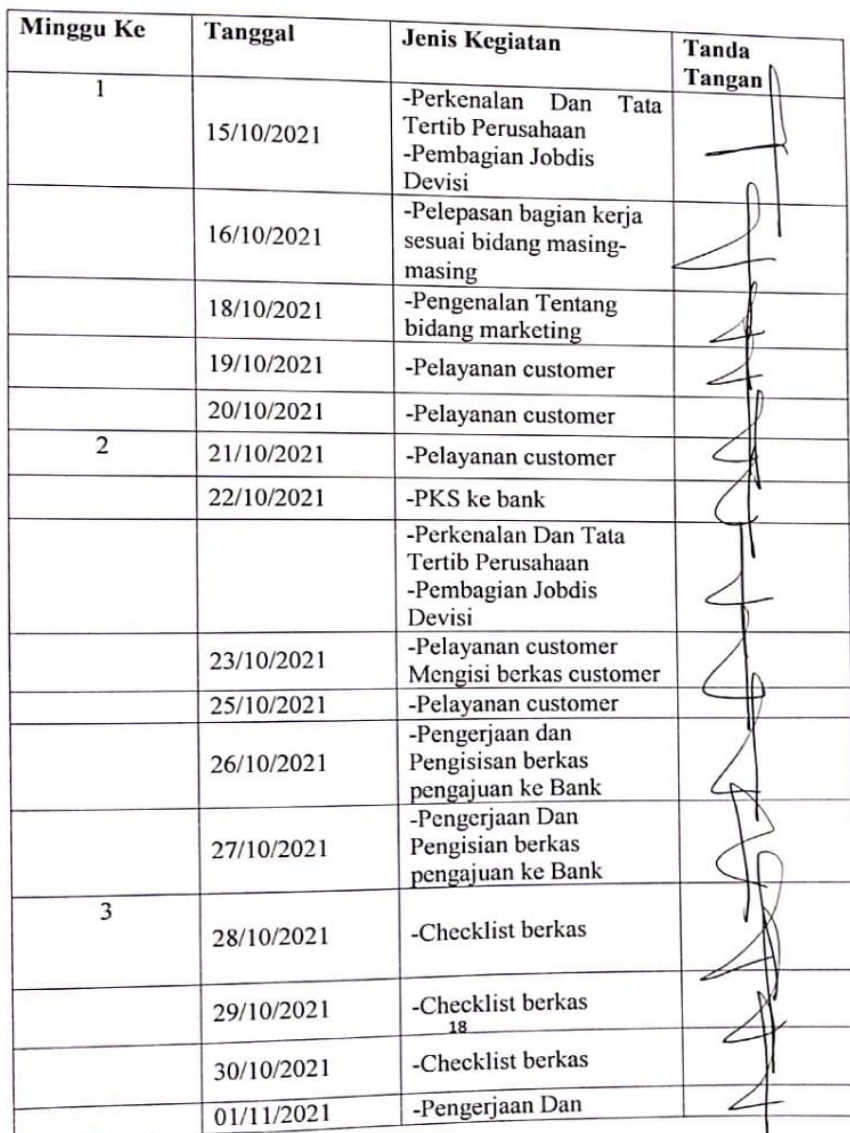 Minggu Ke Tanggal Jenis Kegiatan Tanda
Tangan
1 15/10/2021 -Perkenalan Dan Tata
Tertib Perusahaan
-Pembagian Jobdis
Devisi
16/10/2021 -Pelepasan bagian kerja
sesuai bidang masing-
masing
18/10/2021 -Pengenalan Tentang
bidang marketing
19/10/2021 -Pelayanan customer
20/10/2021 -Pelayanan customer
2 21/10/2021 -Pelayanan customer
22/10/2021 -PKS ke bank
-Perkenalan Dan Tata
Tertib Perusahaan
-Pembagian Jobdis
Devisi
23/10/2021 -Pelayanan customer
Mengisi berkas customer
25/10/2021 -Pelayanan customer
26/10/2021 -Pengerjaan dan
Pengisisan berkas
pengajuan ke Bank
27/10/2021 -Pengerjaan Dan
Pengisian berkas
pengajuan ke Bank
3 28/10/2021 -Checklist berkas
29/10/2021 -Checklist berkas
18
30/10/2021 -Checklist berkas
01/11/2021 -Pengerjaan Dan